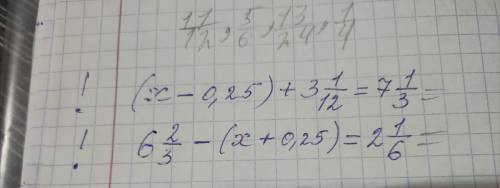 11/12, 5/6, 13/24, 1/4
! (x - 0,25) + 3 1/12 = 7 1/3 =
! 6 2/3 - (x + 0,25) = 2 1/6 =